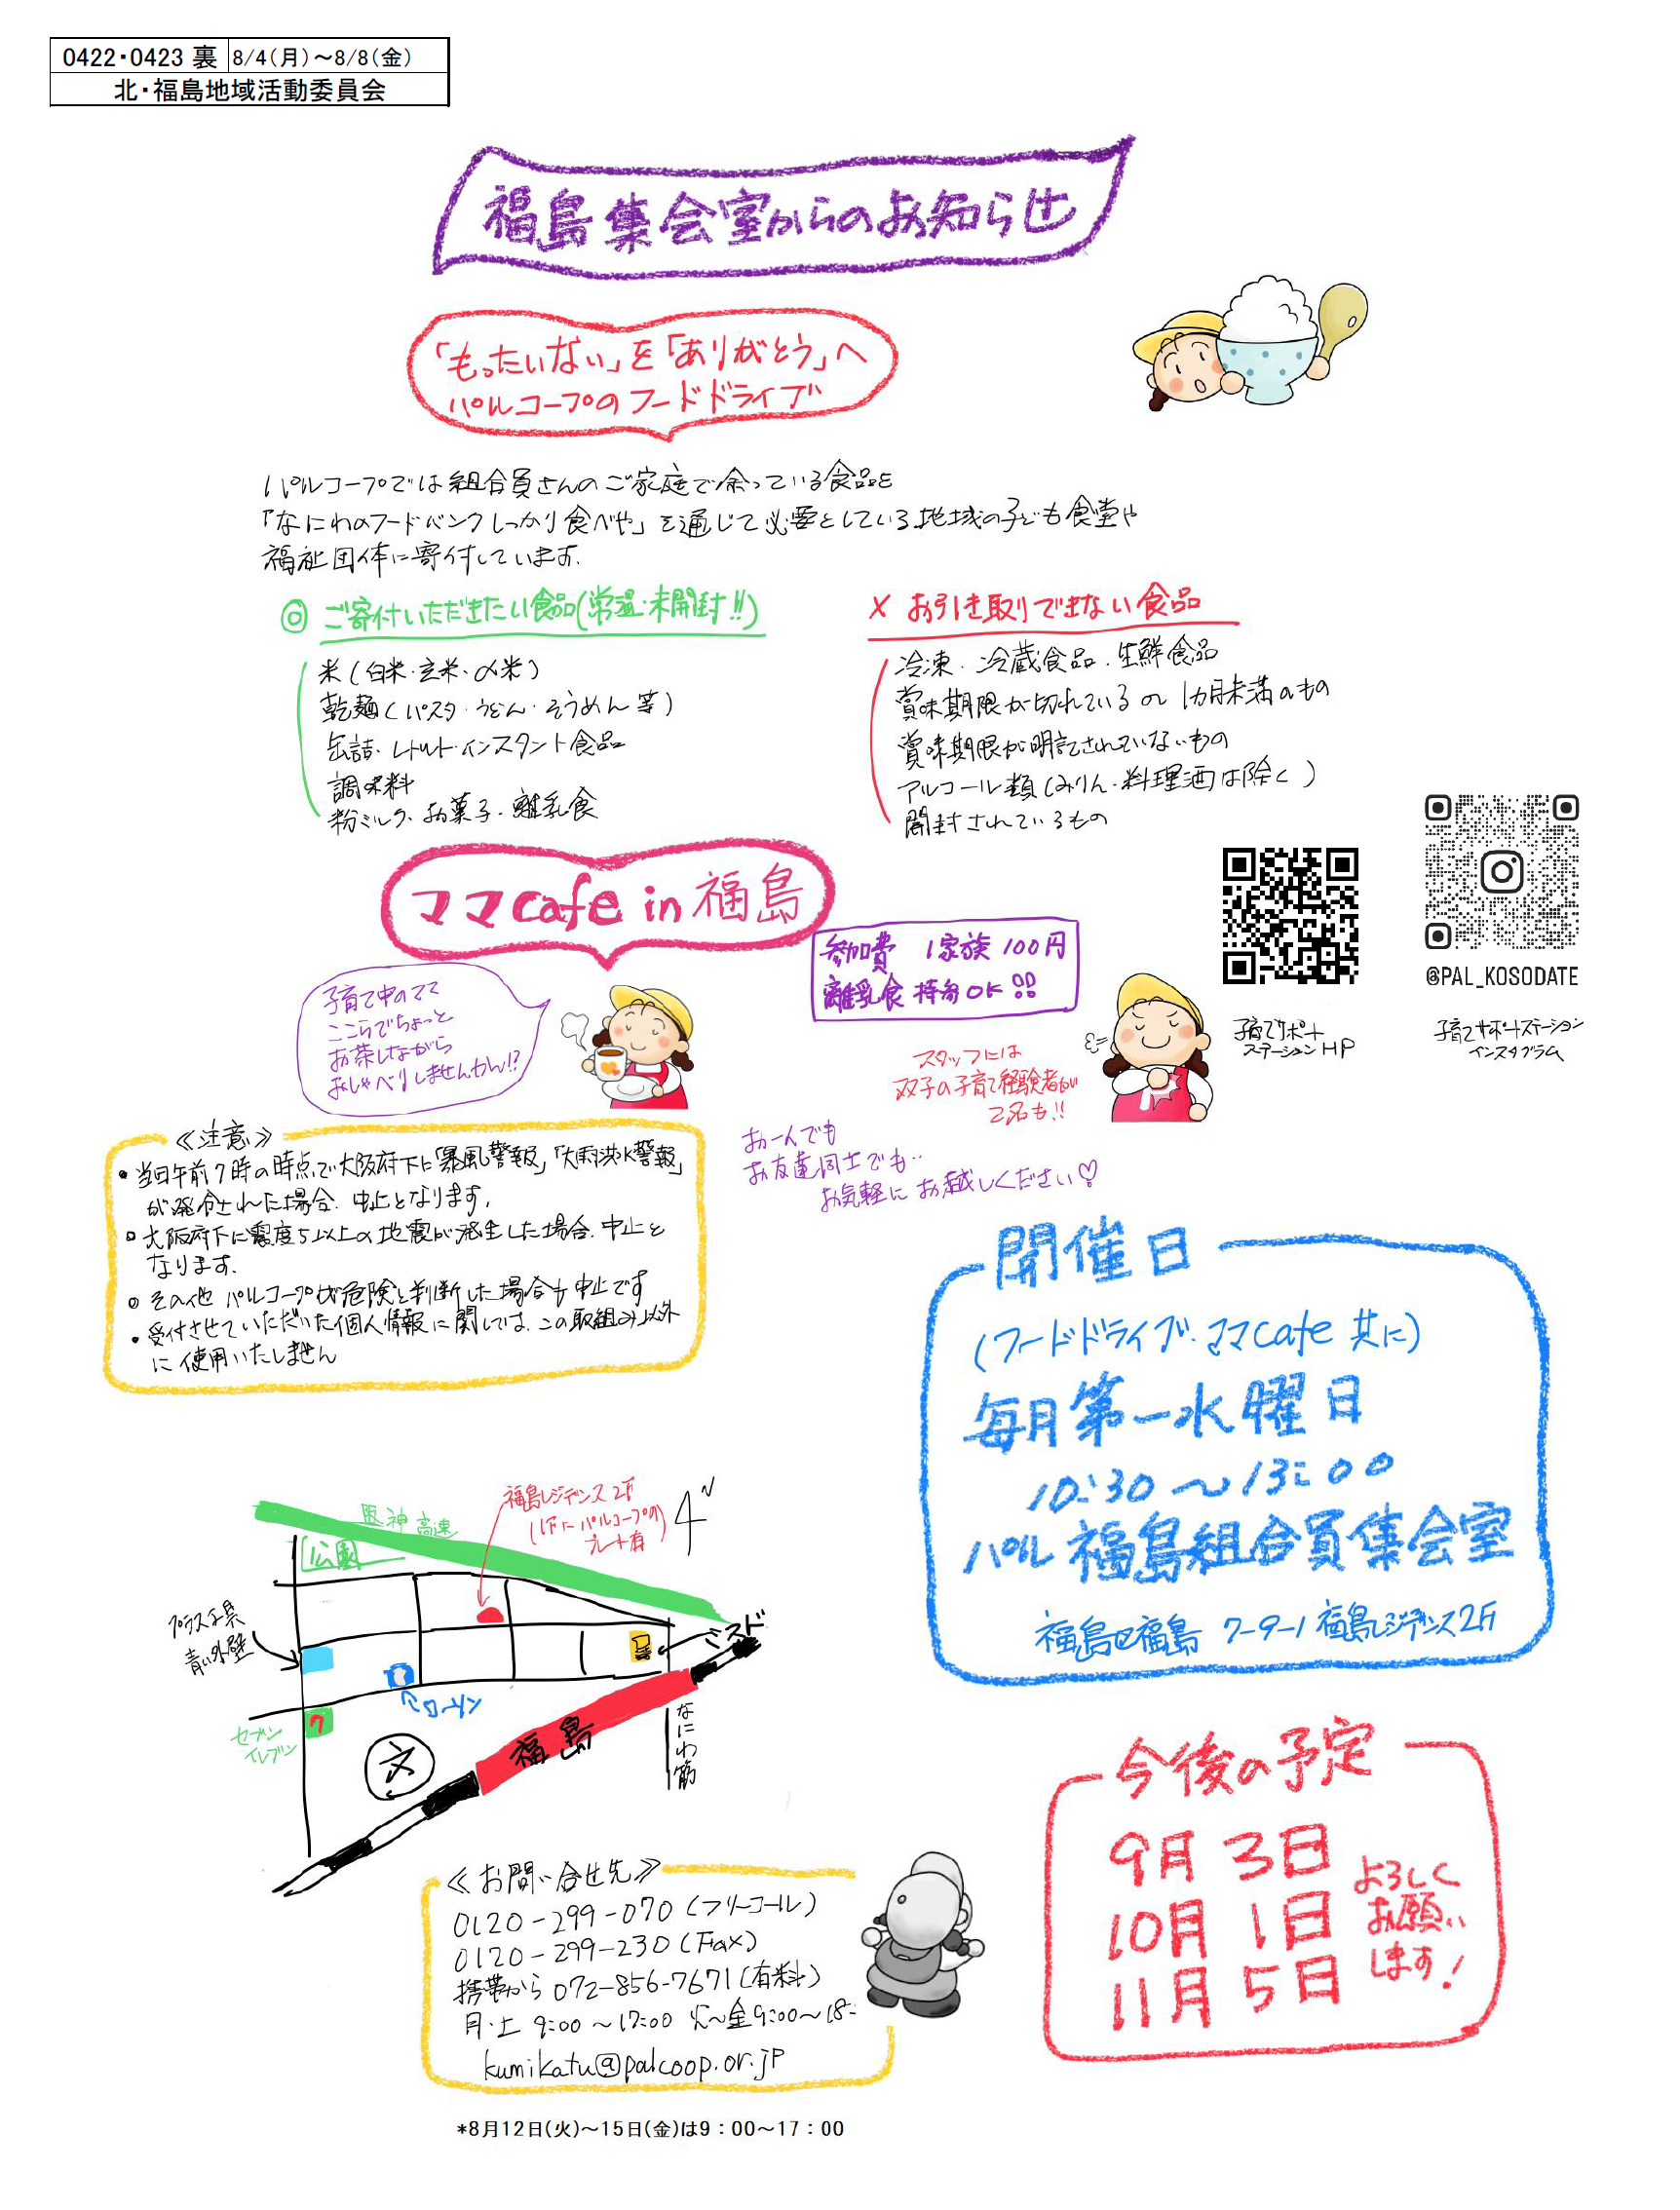 0422・0423 裏 8/4(月)～8/8(金)
北・福島地域活動委員会
福島集会室からのお知らせ
「もったいない」を「ありがとう」へ
パルコープのフードドライブ
パルコープでは組合員さんのご家庭で余っている食品を
「なにわのフードバンクしっかり食べや」を通じて必要としている地域の子ども食堂や
福祉団体に寄付しています.
◎ ご寄付いただきたい食品(常温・未開封!!)
米(白米・玄米・〆米)
乾麺(パスタ・うどん・そうめん等)
缶詰・レトルト・インスタント食品
調味料
粉ミルク・お菓子・離乳食
× お引き取りできない食品
冷凍・冷蔵食品・生鮮食品
賞味期限が切れているor 1カ月未満のもの
賞味期限が明記されていないもの
アルコール類(みりん・料理酒は除く)
開封されているもの
ママcafe in 福島
参加費 1家族 100円
離乳食 持参OK!!
子育て中のママ
ここらでちょっと
お茶しながら
おしゃべりしませんかん!?
スタッフには
双子の子育て経験者が
2名も!!
@PAL_KOSODATE
子育てサポート
ステーションHP
子育てサポートステーション
インスタグラム
お一人でも
お友達同士でも‥
お気軽に お越しください♡
≪注意≫
・当日午前7時の時点で大阪府下に「暴風警報」「大雨洪水警報」
が発令された場合、中止となります.
・大阪府下に震度5以上の地震が発生した場合、中止と
なります.
・その他 パルコープが危険と判断した場合も中止です
・受付させていただいた個人情報に関しては、この取組み以外
に使用いたしません
開催日
(フードドライブ・ママcafe 共に)
毎月第一水曜日
10:30～13:00
パル 福島組合員集会室
福島区福島 7-9-1 福島レジデンス2F
阪神高速
公園
福島レジデンス 2F
(1Fにパルコープの
プレート有)
N
プラス工具
青い外壁
ミスド
ローソン
セブン
イレブン
7
文
福島
なにわ筋
今後の予定
9月 3日
10月 1日
11月 5日
よろしく
お願い
します!
≪お問い合せ先≫
0120-299-070(フリーコール)
0120-299-230(Fax)
携帯から 072-856-7671(有料)
月・土 9:00～17:00 火～金9:00～18:
kumikatu@palcoop.or.jp
*8月12日(火)～15日(金)は9:00～17:00